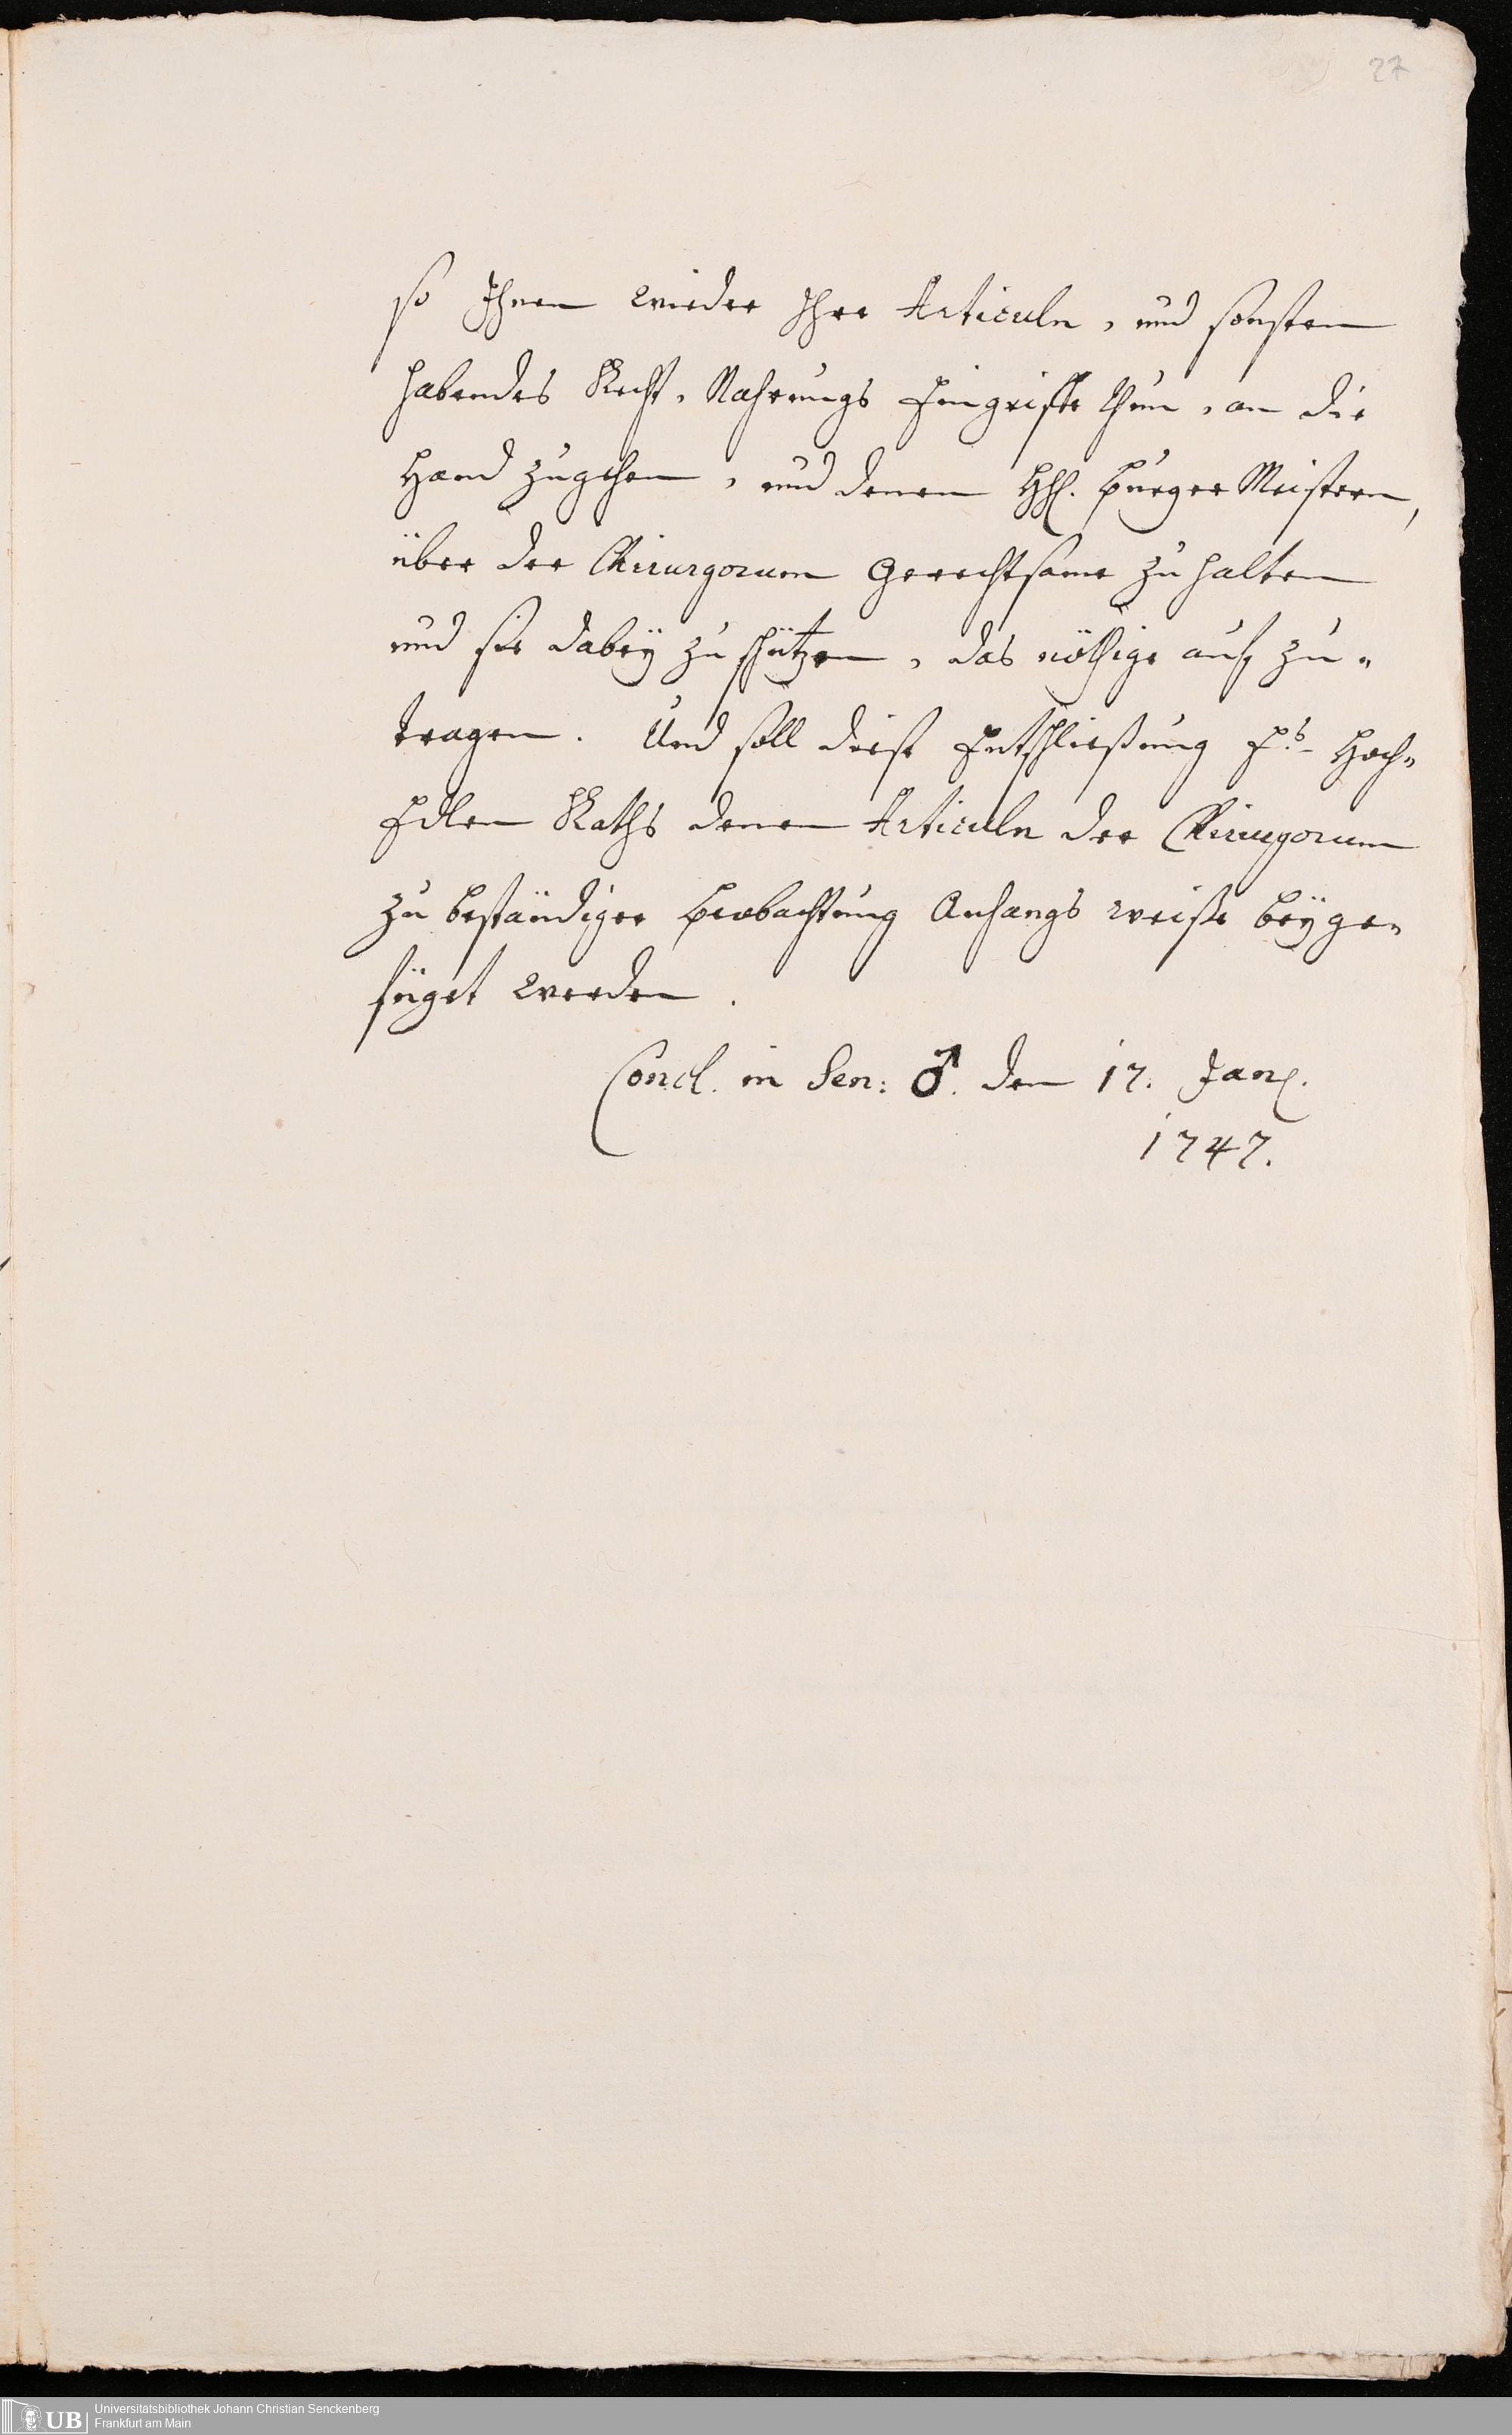 27
so Ihnen wieder Ihre Articuln, und sonsten
habendes Recht, Nahrungs Eingriffe thun, an die
Hand zugehen, und denen HHl. Burger Meistern,
über der Chirurgorum Gerechtsame zu halten
und sie dabeÿ zu schützen, das nöthige auf zu„
tragen. Und soll diese Entschließung E.s Hoch„
Edlen Raths denen Articuln der Chirurgorum
zu beständiger Beobachtung Anhangs weiße beÿge„
füget werden.
Concl. in Sen: ♂. den 17. Jan.
1747.
UB
Universitätsbibliothek Johann Christian Senckenberg
Frankfurt am Main